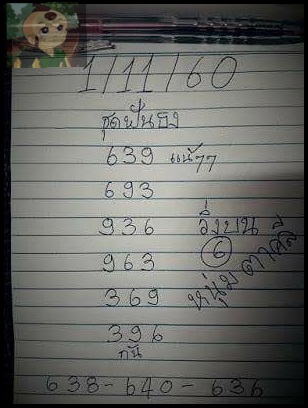 1/11/60
ชุดฟันธง
639 แน่77
693
936 วิ่งบน
963 6
369 หนุ่ม ตาคลี
396
กัน
638-640-636